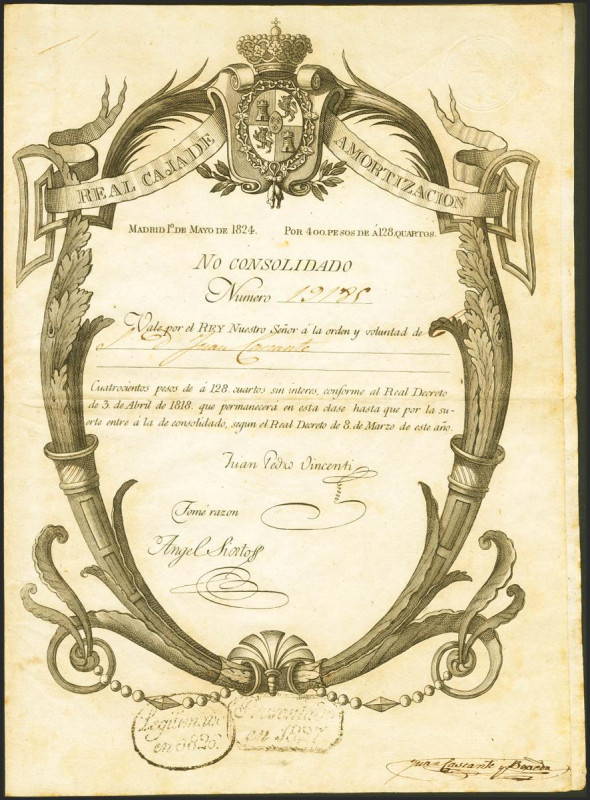 REAL CAJA DE AMORTIZACION
MADRID 1º DE MAYO DE 1824. POR 400. PESOS DE Á 128. QUARTOS.
NO CONSOLIDADO
Numero 19185
Vale por el REY Nuestro Señor á la orden y voluntad de
Juan Cascante
Cuatrocientos pesos de á 128. cuartos sin interes, conforme al Real Decreto
de 3. de Abril de 1818. que permanecerá en esta clase hasta que por la su-
erte entre á la de consolidado, segun el Real Decreto de 8. de Marzo de este año.
Juan Pedro Vincenti
Tomé razon
Angel
en 1825.
Presentado
en 1827
Juan Cascante y